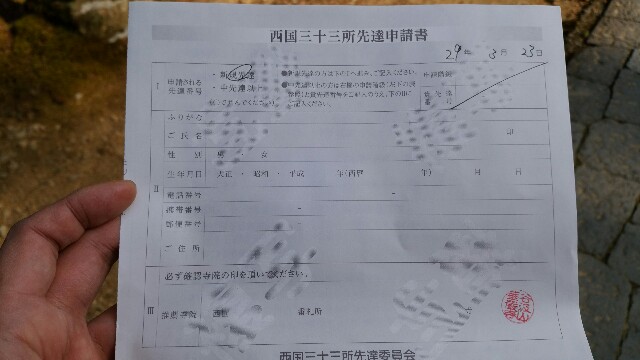 西国三十三所先達申請書
29年 3月 23日
I
申請される
先達番号
・新規先達
・中先達以上
申請階級
ふりがな
ご氏名
印
II
性別
男 ・ 女
生年月日
大正 ・ 昭和 ・ 平成 年(西暦 年) 月 日
電話番号
携帯番号
郵便番号
ご住所
必ず確認寺院の印を頂いてください。
III
推薦寺院
西国 番札所 寺
西国三十三所先達委員会